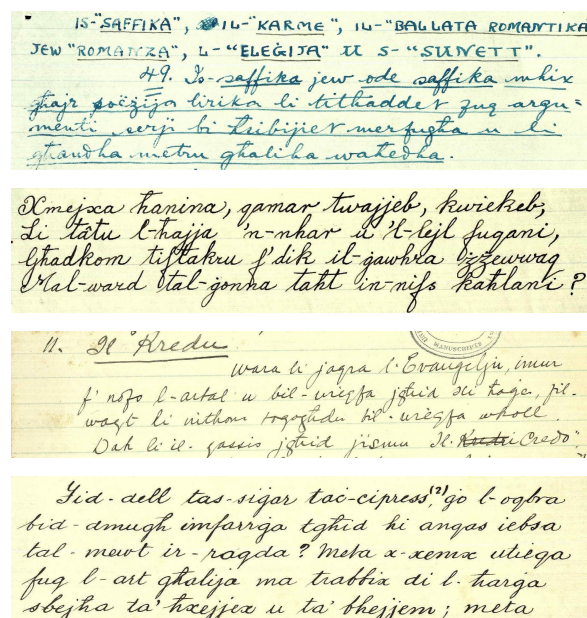 IS-"SAFFIKA", IL-"KARME", IL-"BALLATA ROMANTIKA
JEW "ROMANZA", L-"ELEĠIJA" U S-"SUNETT".
49. Is-saffika jew ode saffika mhix
għajr poëżija lirika li titħaddet fuq argu-
menti serji bi ħsibijiet merfugħa u li
għandha metru għaliha waħedha.
Xmejxa ħanina, qamar twajjeb, kwiekeb,
Li tâtu l-ħajja 'n-nhar u 'l-lejl fuqani,
Għadkom tiftakru f'dik il-ġawhra żżewwaq
Mal-ward tal-ġonna taħt in-nifs kaħlani?
11. Il Kredu
wara li jaqra l-Evangelju, imur
f'nofs l-artal u bil-wieqfa jgħid xi ħaġa, fil-
waqt li nithom bil-wieqfa wkoll.
Dak li il-qassis jgħid jismu Il-Credo".
MANUSCRIPTS
Fid-dell tas-siġar taċ-ċipress,(2) ġo l-oqbra
bid-dmugħ imfarrġa tgħid hi anqas iebsa
tal-mewt ir-raqda? Meta x-xemx utieqa
fuq l-art għalija ma trabbix di l-ħarġa
sbejħa ta' ħxejjex u ta' bhejjem; meta